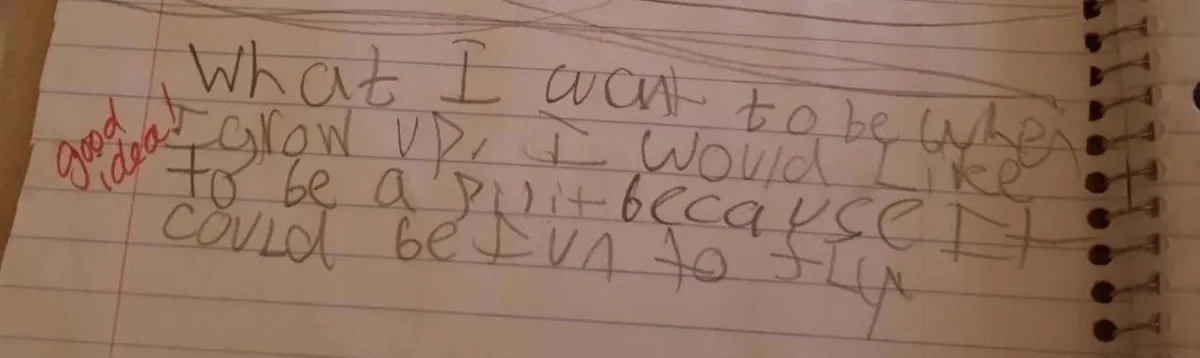 What I want to be when
I grow up, I would Like
to be a pilit because It
could be fun to fly
good
idea!